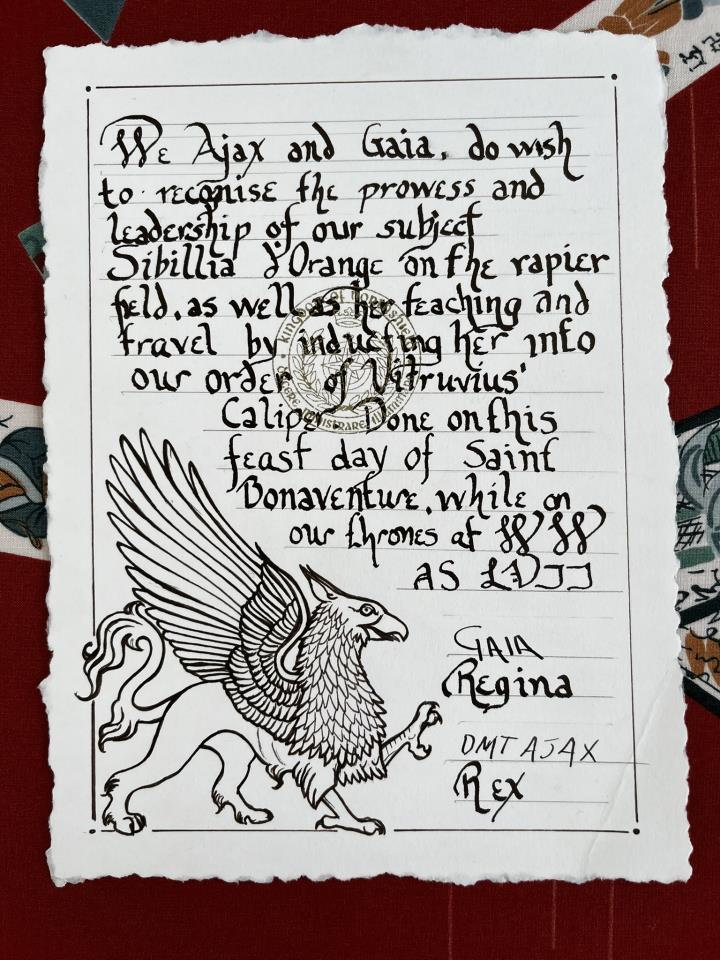 We Ajax and Gaia, do wish
to recognise the prowess and
leadership of our subject
Sibillia d'Orange on the rapier
field, as well as her teaching and
travel by inducting her into
our order of Vitruvius'
Caliper Done on this
feast day of Saint
Bonaventure, while on
our thrones at WW
AS LVII
GAIA
Regina
DMT AJAX
Rex
Kingdom of